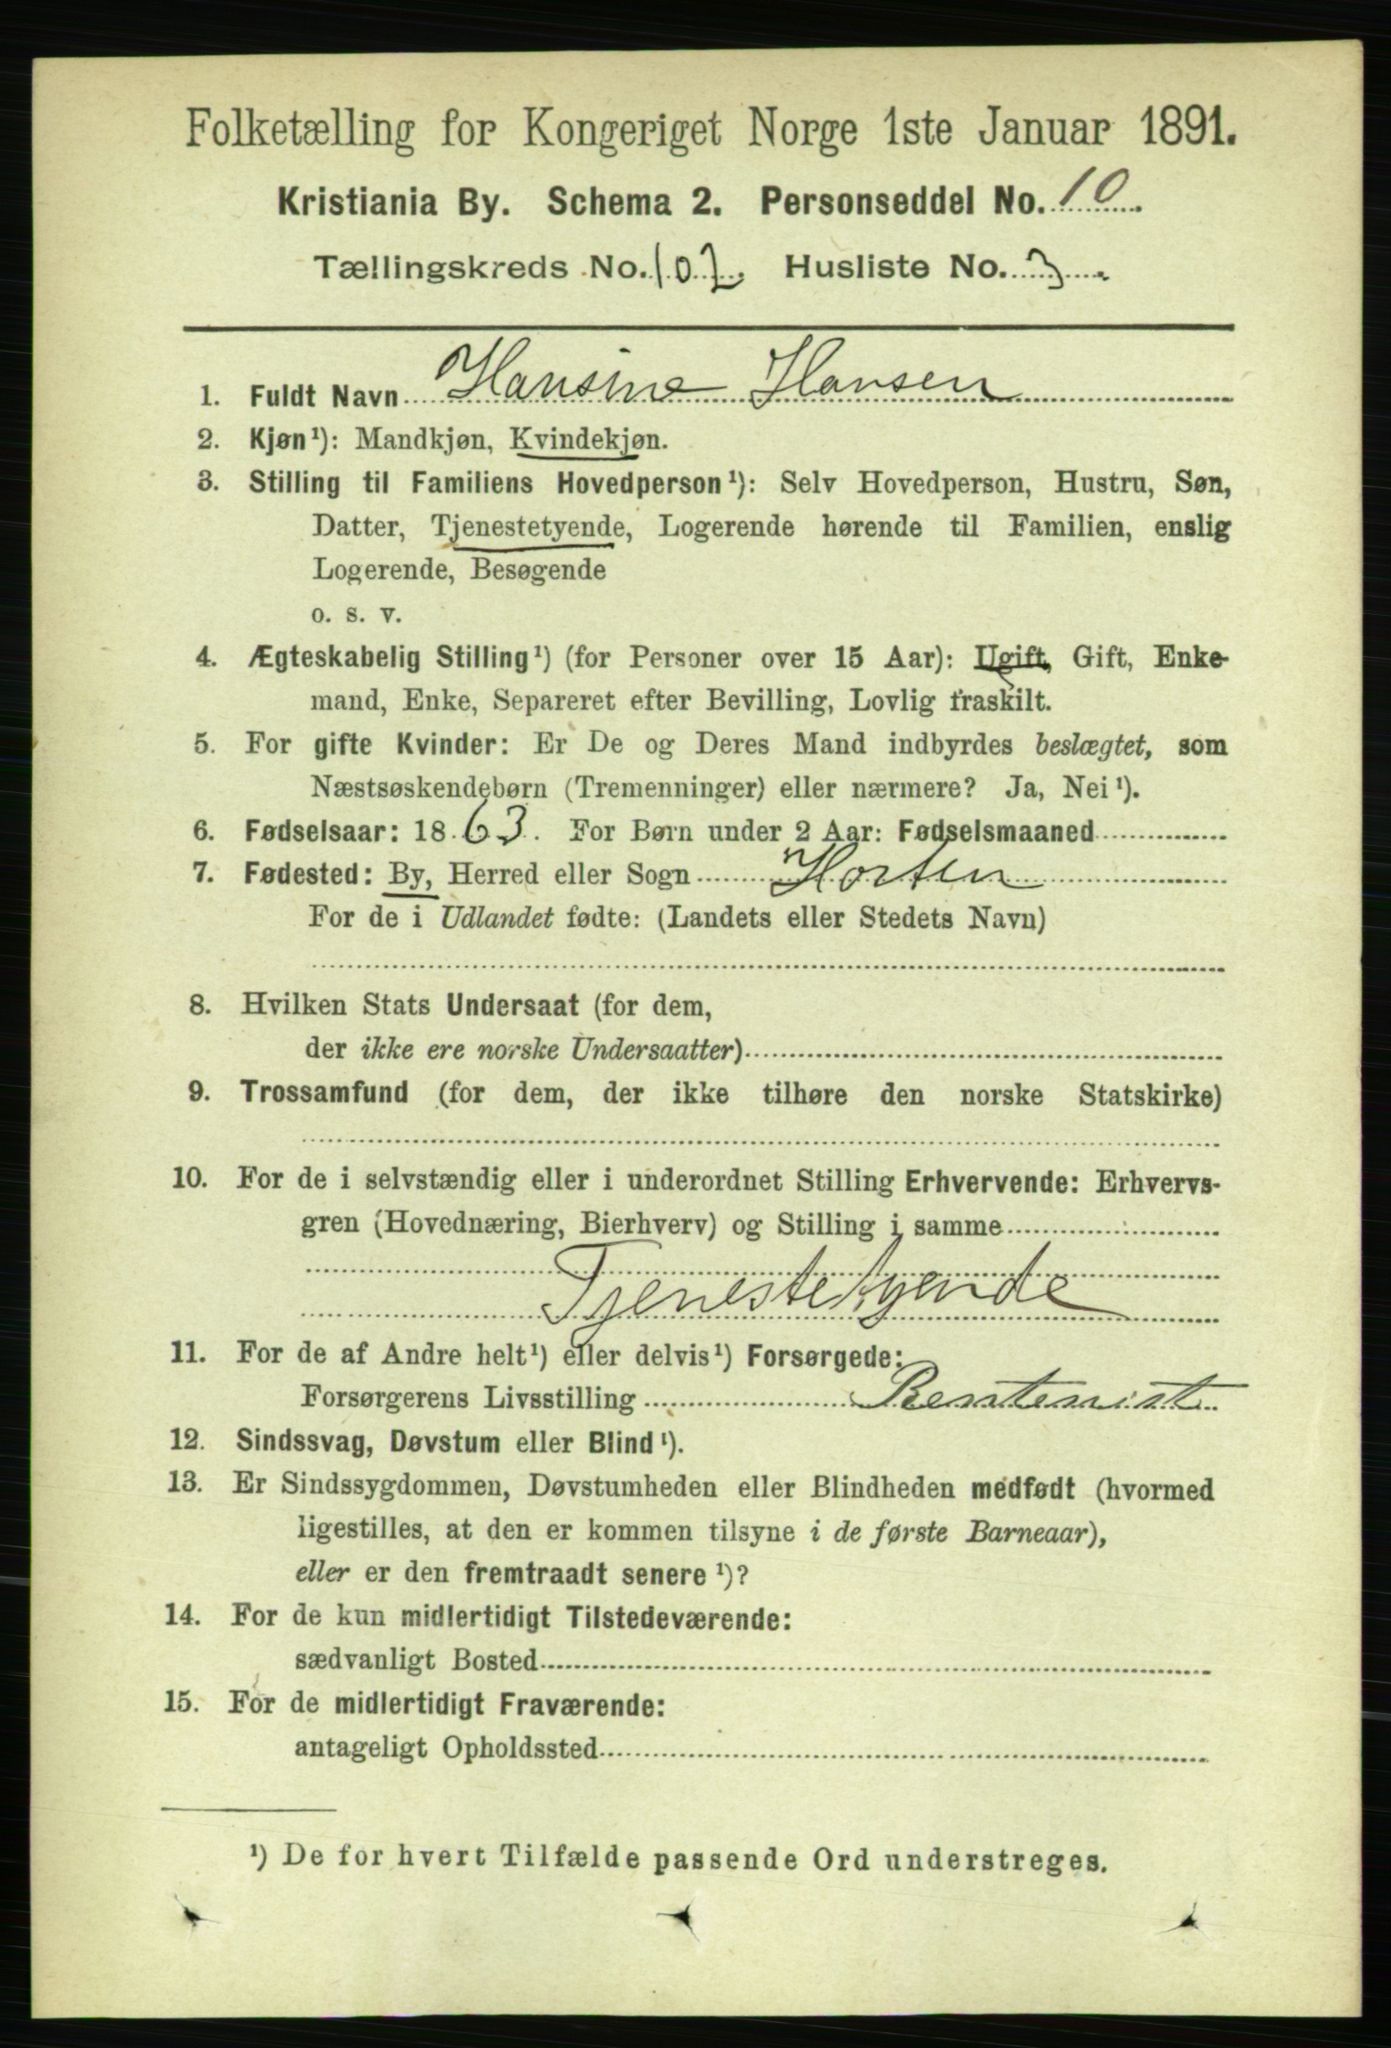 Folketælling for Kongeriget Norge 1ste Januar 1891.
Kristiania By. Schema 2. Personseddel No. 10.
Tællingskreds No. 102. Husliste No. 3.
1. Fuldt Navn Hansine Hansen
2. Kjøn¹): Mandkjøn, Kvindekjøn.
3. Stilling til Familiens Hovedperson¹): Selv Hovedperson, Hustru, Søn,
Datter, Tjenestetyende, Logerende hørende til Familien, enslig
Logerende, Besøgende
o. s. v.
4. Ægteskabelig Stilling¹) (for Personer over 15 Aar): Ugift, Gift, Enke-
mand, Enke, Separeret efter Bevilling, Lovlig fraskilt.
5. For gifte Kvinder: Er De og Deres Mand indbyrdes beslægtet, som
Næstsøskendebørn (Tremenninger) eller nærmere? Ja, Nei¹).
6. Fødselsaar: 1863. For Børn under 2 Aar: Fødselsmaaned
7. Fødested: By, Herred eller Sogn Horten
For de i Udlandet fødte: (Landets eller Stedets Navn)
8. Hvilken Stats Undersaat (for dem,
der ikke ere norske Undersaatter)
9. Trossamfund (for dem, der ikke tilhøre den norske Statskirke)
10. For de i selvstændig eller i underordnet Stilling Erhvervende: Erhvervs-
gren (Hovednæring, Bierhverv) og Stilling i samme
Tjenestetyende
11. For de af Andre helt¹) eller delvis¹) Forsørgede:
Forsørgerens Livsstilling Rentenist
12. Sindssvag, Døvstum eller Blind¹).
13. Er Sindssygdommen, Døvstumheden eller Blindheden medfødt (hvormed
ligestilles, at den er kommen tilsyne i de første Barneaar),
eller er den fremtraadt senere¹)?
14. For de kun midlertidigt Tilstedeværende:
sædvanligt Bosted
15. For de midlertidigt Fraværende:
antageligt Opholdssted
¹) De for hvert Tilfælde passende Ord understreges.